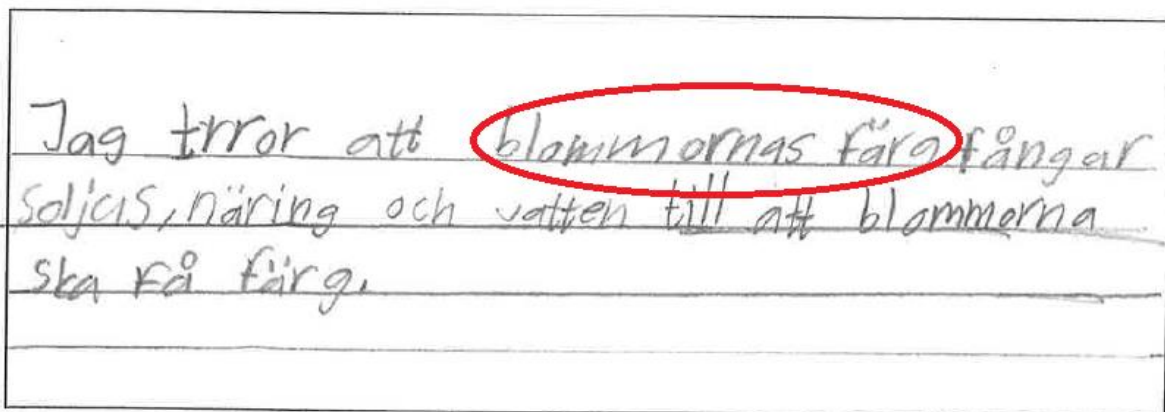 Jag trror att blommornas färg fångar
soljus, näring och vatten till att blommorna
ska få färg.